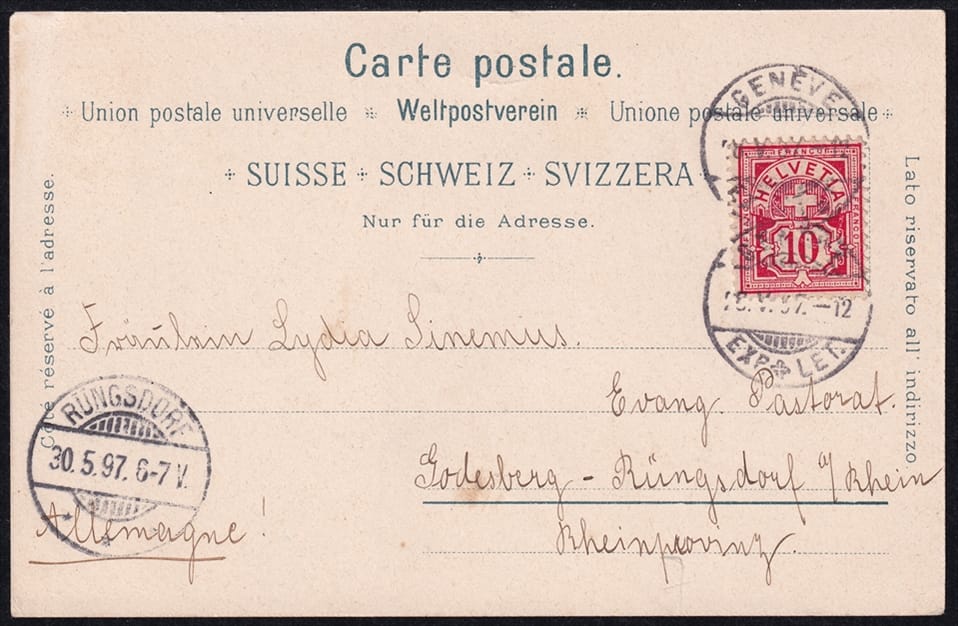 Carte postale.
Union postale universelle Weltpostverein Unione postale universale
SUISSE SCHWEIZ SVIZZERA
Nur für die Adresse.
Côté réservé à l'adresse.
Lato riservato all' indirizzo
GENÈVE
FRANCO
FRANCO
FRANCO
HELVETIA
10
V. 97.-12
EXP. LET.
Fräulein Lydia Sinemus.
Evang. Pastorat.
Godesberg - Rüngsdorf a/Rhein
Rheinprovinz.
RÜNGSDORF
30.5.97. 6-7 V.
Allemagne!